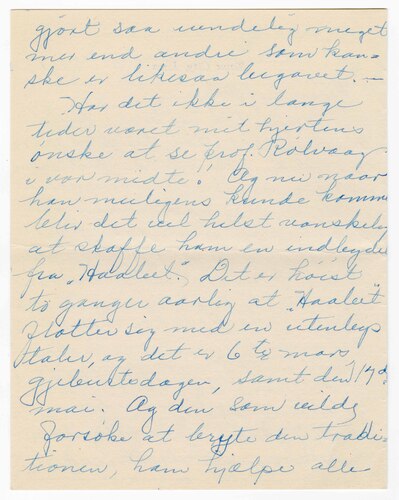 gjort saa uendelig meget
mer end andre som kan-
ske er likesaa begavet. —
Har det ikke i lange
tider været mit hjertens
ønske at se prof. Rölvaag
i vor midte! Og nu naar
han muligens kunde komme
blir det vel helst vanskelig
at skaffe ham en indbydelse
fra „Haaleit". Det er høist
to ganger aarlig at „Haaleit"
flotter sig med en utenbys
taler, og det er 6te mars,
gjebursdagen, samt den 17de
mai. Og den som vilde
forsøke at bryte den tradi-
tionen, ham hjælpe alle